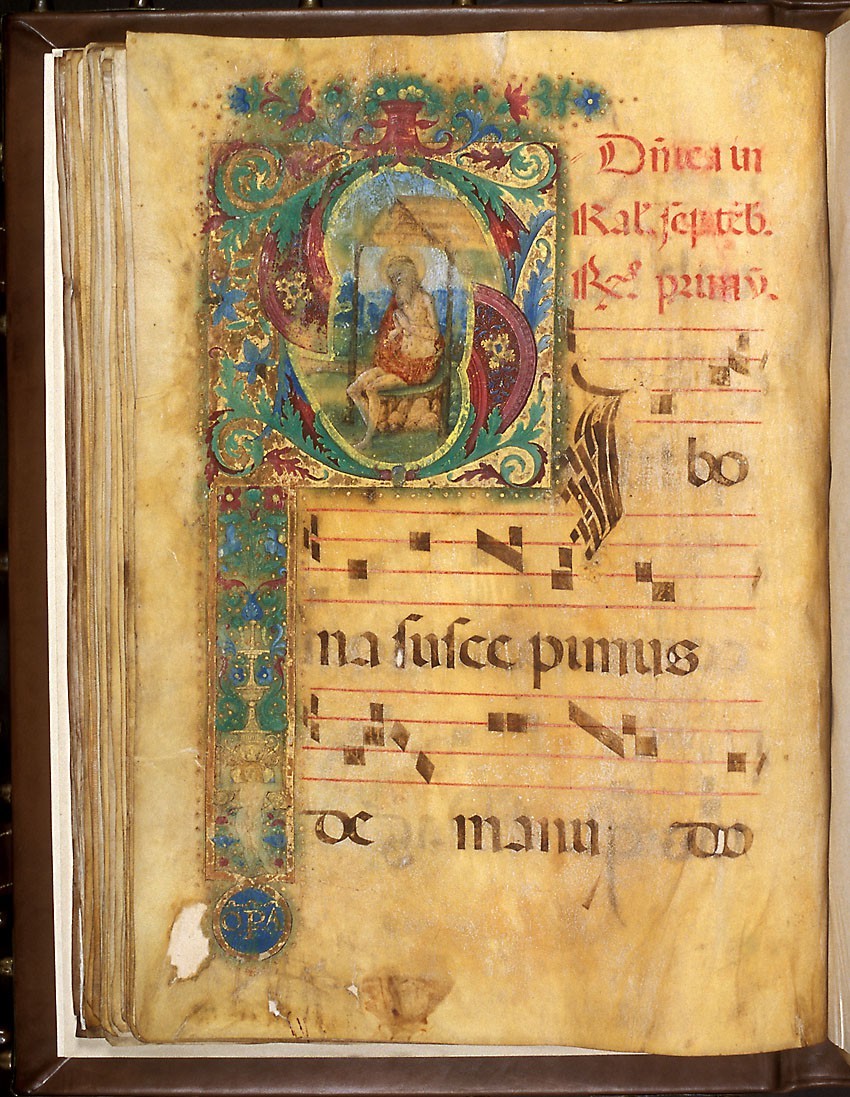 Dñica in
Kal. septēb.
Rx. primū.
SI bo
na susce pimus
de manu do
OPA